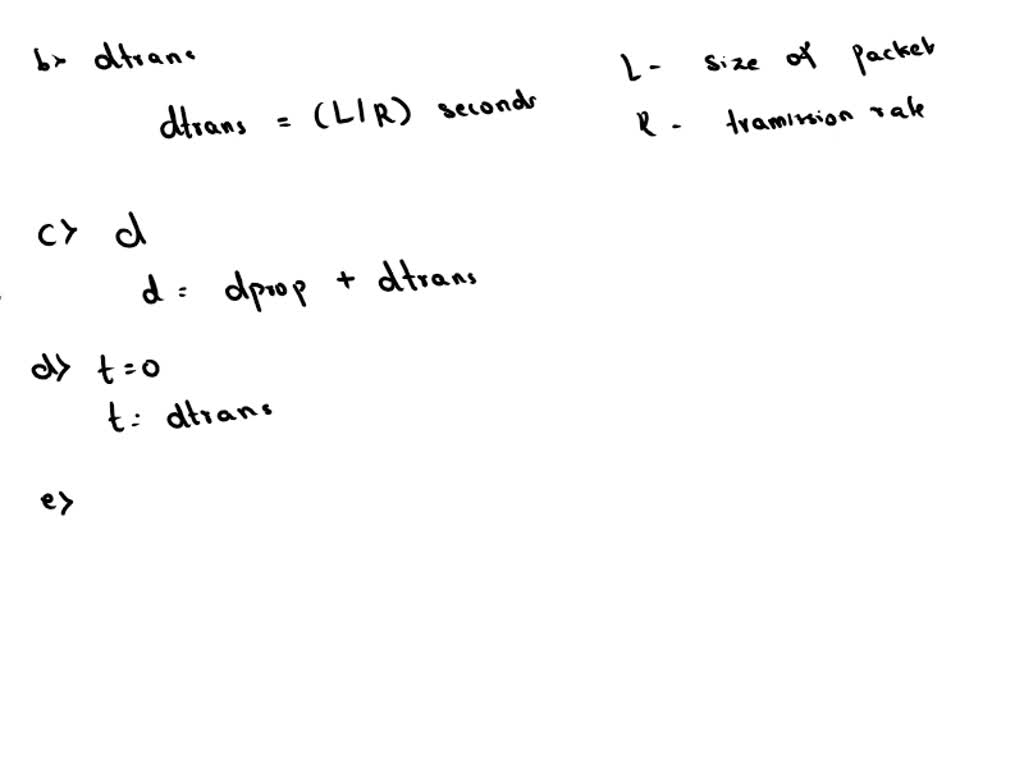 b> dtrans
L - size of packet
dtrans = (L/R) seconds
R - tramission rate
c> d
d = dprop + dtrans
d> t=0
t= dtrans
e>